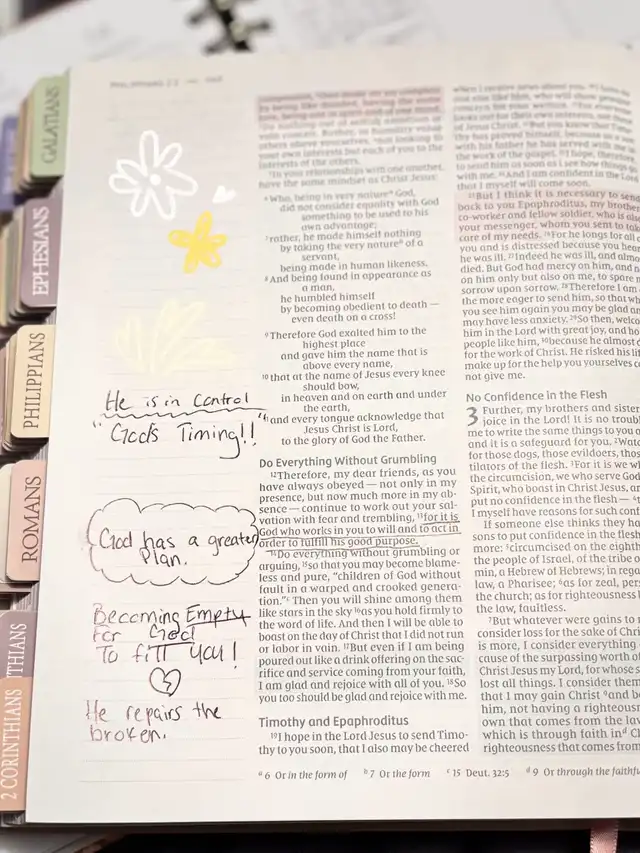 GALATIANS
EPHESIANS
PHILIPPIANS
ROMANS
THIANS
2 CORINTHIANS
He is in Control
"God's Timing!!"
God has a greater
Plan.
Becoming Empty
For God
To fill you!
He repairs the
broken.
by being like-minded, having the same
love, being one in spirit and of one mind.
others above yourselves, not looking to
your own interests but each of you to the
interests of the others.
5In your relationships with one another,
have the same mindset as Christ Jesus:
6Who, being in very nature a God,
did not consider equality with God
something to be used to his
own advantage;
7rather, he made himself nothing
by taking the very nature b of a
servant,
being made in human likeness.
8And being found in appearance as
a man,
he humbled himself
by becoming obedient to death —
even death on a cross!
9Therefore God exalted him to the
highest place
and gave him the name that is
above every name,
10that at the name of Jesus every knee
should bow,
in heaven and on earth and under
the earth,
11and every tongue acknowledge that
Jesus Christ is Lord,
to the glory of God the Father.
Do Everything Without Grumbling
12Therefore, my dear friends, as you
have always obeyed — not only in my
presence, but now much more in my ab-
sence — continue to work out your sal-
vation with fear and trembling, 13for it is
God who works in you to will and to act in
order to fulfill his good purpose.
14Do everything without grumbling or
arguing, 15so that you may become blame-
less and pure, "children of God without
fault in a warped and crooked genera-
tion." c Then you will shine among them
like stars in the sky 16as you hold firmly to
the word of life. And then I will be able to
boast on the day of Christ that I did not run
or labor in vain. 17But even if I am being
poured out like a drink offering on the sac-
rifice and service coming from your faith,
I am glad and rejoice with all of you. 18So
you too should be glad and rejoice with me.
Timothy and Epaphroditus
19I hope in the Lord Jesus to send Timo-
thy to you soon, that I also may be cheered
when I receive news about you.
of Jesus Christ.
thy has proved himself, because as
with his father he has served with me
the work of the gospel. 23I hope, therefore,
to send him as soon as I see how things go
with me. 24And I am confident in the Lord
that I myself will come soon.
25But I think it is necessary to send
back to you Epaphroditus, my brother
co-worker and fellow soldier, who is also
your messenger, whom you sent to take
care of my needs. 26For he longs for all
you and is distressed because you hear
he was ill. 27Indeed he was ill, and almo
died. But God had mercy on him, and n
on him only but also on me, to spare m
sorrow upon sorrow. 28Therefore I am
the more eager to send him, so that wh
you see him again you may be glad an
may have less anxiety. 29So then, welco
him in the Lord with great joy, and ho
people like him, 30because he almost d
for the work of Christ. He risked his lif
make up for the help you yourselves c
not give me.
No Confidence in the Flesh
3 Further, my brothers and sister
joice in the Lord! It is no troubl
me to write the same things to you a
and it is a safeguard for you. 2Wat
for those dogs, those evildoers, thos
tilators of the flesh. 3For it is we w
the circumcision, we who serve God
Spirit, who boast in Christ Jesus, an
put no confidence in the flesh — 4t
I myself have reasons for such conf
If someone else thinks they ha
sons to put confidence in the flesh
more: 5circumcised on the eighth
the people of Israel, of the tribe o
min, a Hebrew of Hebrews; in rega
law, a Pharisee; 6as for zeal, per
the church; as for righteousness
the law, faultless.
7But whatever were gains to
consider loss for the sake of Ch
is more, I consider everything
cause of the surpassing worth of
Christ Jesus my Lord, for whose s
lost all things. I consider them
that I may gain Christ 9and b
him, not having a righteousn
own that comes from the law
which is through faith in d Ch
righteousness that comes from
a 6 Or in the form of b 7 Or the form c 15 Deut. 32:5 d 9 Or through the faithfu